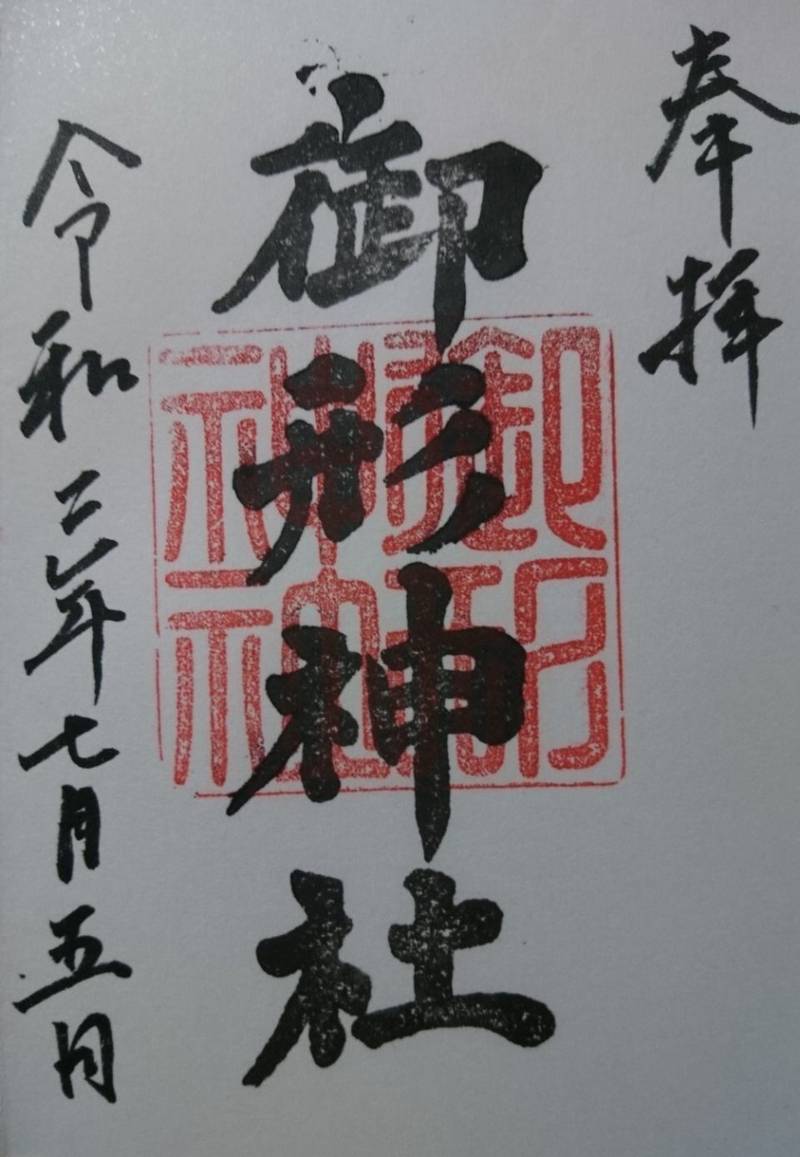 奉拝
御形神社
令和二年七月五日